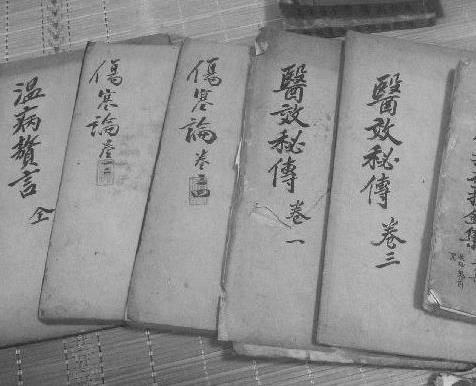 温病贅言 全
傷寒論 卷一二
傷寒論 卷三四
醫效秘傳 卷一
醫效秘傳 卷三
全集